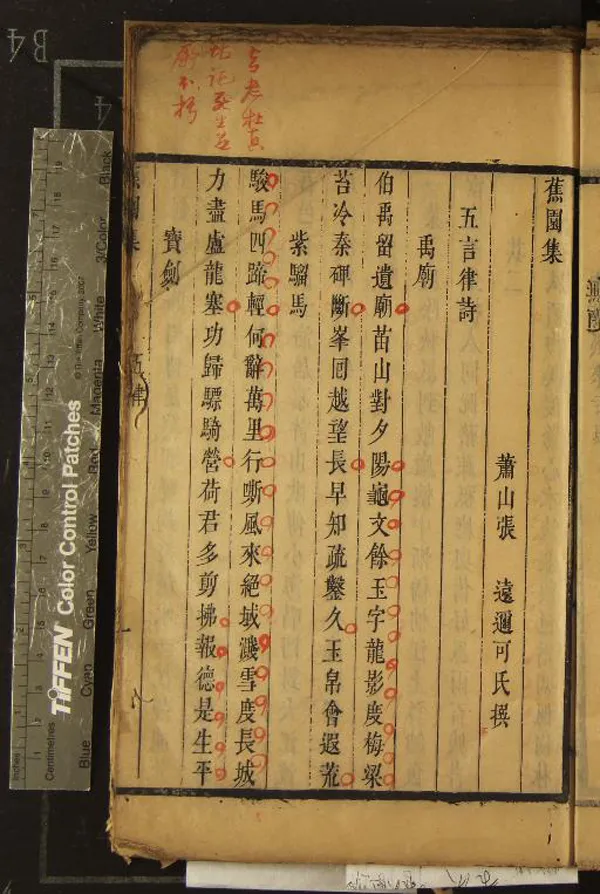 与老杜真
堪託死生並
爲不朽
蕉園集
蕭山張　遠邇可氏撰
五言律詩
禹廟
伯禹留遺廟苗山對夕陽龜文餘玉字龍影度梅梁
苔冷秦碑斷峯囘越望長早知疏鑿久玉帛會遐荒
紫騮馬
駿馬四蹄輕何辭萬里行嘶風來絕域濺雪度長城
力盡盧龍塞功歸驃騎營荷君多剪拂報德是生平
寶劍
蕉園集　五律
B4
TIFFEN Color Control Patches
© The Tiffen Company, 2007
Blue Cyan Green Yellow Red Magenta White 3/Color Black
Inches
Centimetres